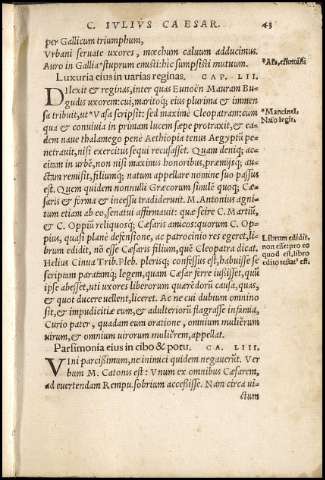 C. IVLIVS CAESAR. 43
per Gallicum triumphum,
Vrbani seruate uxores, mœchum caluum adducimus.
Auro in Gallia *stuprum emisti: hic sumpsisti mutuum.
Luxuria eius in uarias reginas. CAP. LII.
Dilexit & reginas, inter quas Eunoën Mauram Bu-
gudis uxorem: cui, maritoq; eius plurima & immen
sa tribuit, ut *Vasa scripsit: sed maximè Cleopatram: cum
qua & conuiuia in primam lucem sæpe protraxit, & ea-
dem naue thalamego penè Aethiopia tenus Aegyptū pe-
netrauit, nisi exercitus sequi recusasset. Quam deniq; ac-
citam in urbē, non nisi maximis honoribus, præmijsq; au-
ctum remisit, filiumq; natum appellare nomine suo passus
est. Quem quidem nonnulli Græcorum similē quoq; Cæ-
saris & forma & incessu tradiderunt. M. Antonius agni-
tum etiam ab eo, senatui affirmauit: quæ scire C. Martiū,
& C. Oppiū reliquosq; Cæsaris amicos: quorum C. Op-
pius, quasi planè defensione, ac patrocinio res egeret, li-
brum edidit, nō esse Cæsaris filium, quē Cleopatra dicat.
Heluius Cinna Trib. Pleb. plerisq; confessus est, habuisse se
scriptam paratamq; legem, quam Cæsar ferre iussisset, quū
ipse abesset, uti uxores liberorum quærēdorū causa, quas,
& quot ducere uellent, liceret. Ac ne cui dubium omnino
sit, & impudicitiæ eum, & adulteriorū flagrasse infamia,
Curio pater, quadam eum oratione, omnium mulierum
uirum, & omnium uirorum mulierem, appellat.
Parsimonia eius in cibo & potu. CA. LIII.
Vini parcissimum, ne inimici quidem negauerūt. Ver
bum M. Catonis est: Vnum ex omnibus Cæsarem,
ad euertendam Rempu. sobrium accessisse. Nam circa ui-
ctum
*Als, effutuisti
*Marcius L.
Naso legit.